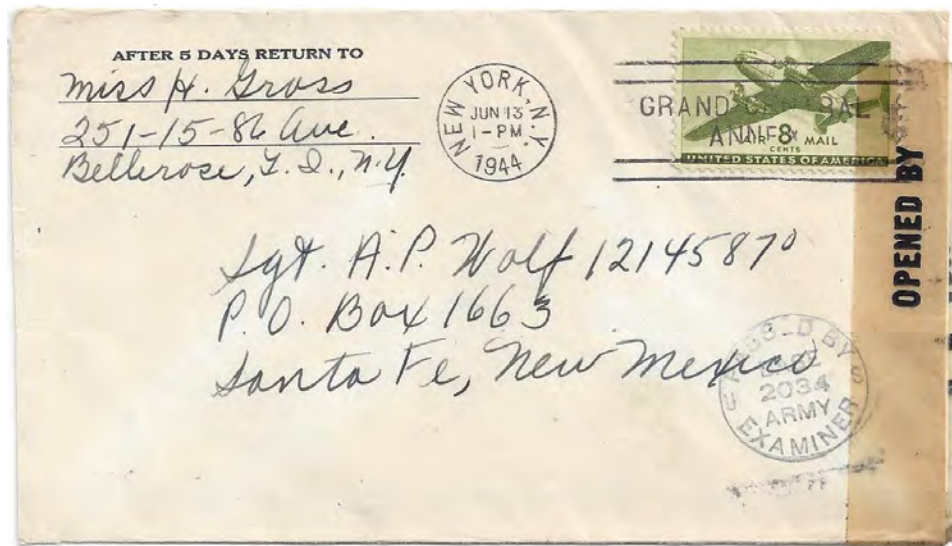 AFTER 5 DAYS RETURN TO
Miss H. Gross
251-15-86 Ave.
Bellerose, L. I., N.Y.
NEW YORK, N.Y.
JUN 13
1-PM
1944
GRAND CENTRAL
ANNEX
AIR 8 MAIL
CENTS
UNITED STATES OF AMERICA
OPENED BY
Sgt. A.P. Wolf 12145870
P.O. Box 1663
Santa Fe, New Mexico
PASSED BY
2034
ARMY
EXAMINER